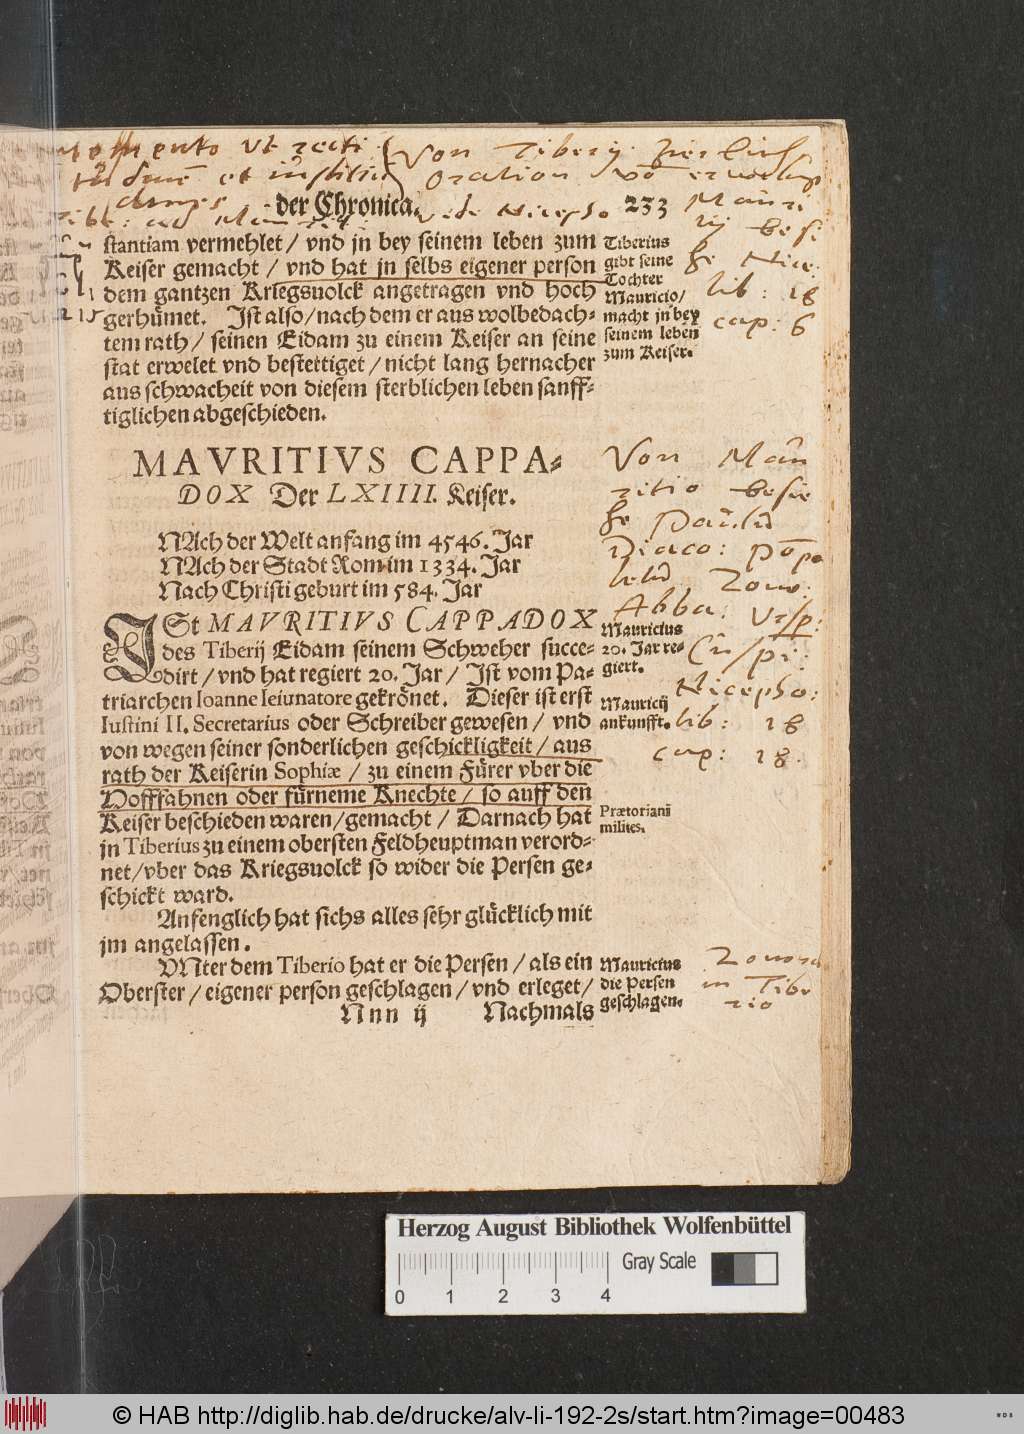 Von Tiberij zierlich
oration
der Chronica.
233
stantiam vermehlet / vnd jn bey seinem leben zum
Keiser gemacht / vnd hat jn selbs eigener person
dem gantzen Kriegsuolck angetragen vnd hoch
gerhümet. Ist also / nach dem er aus wolbedach-
tem rath / seinen Eidam zu einem Keiser an seine
stat erwelet vnd bestettiget / nicht lang hernacher
aus schwacheit von diesem sterblichen leben sanff-
tiglichen abgeschieden.
Tiberius
gibt seine
Tochter
Mauricio /
macht jn bey
seinem leben
zum Keiser.
besi
he Nice
lib: 18
cap: 6
MAVRITIVS CAPPA-
DOX Der LXIIII. Keiser.
NAch der Welt anfang im 4546. Jar
NAch der Stadt Rom im 1334. Jar
Nach Christi geburt im 584. Jar
ISt MAVRITIVS CAPPADOX
des Tiberij Eidam seinem Schweher succe-
dirt / vnd hat regiert 20. Jar / Ist vom Pa-
triarchen Ioanne Ieiunatore gekrönet. Dieser ist erst
Iustini II. Secretarius oder Schreiber gewesen / vnd
von wegen seiner sonderlichen geschickligkeit / aus
rath der Keiserin Sophiæ / zu einem Fürer vber die
Hofffahnen oder fürneme Knechte / so auff den
Keiser beschieden waren / gemacht / Darnach hat
jn Tiberius zu einem obersten Feldheuptman verord-
net / vber das Kriegsuolck so wider die Persen ge-
schickt ward.
Anfenglich hat sichs alles sehr glücklich mit
jm angelassen.
VNter dem Tiberio hat er die Persen / als ein
Oberster / eigener person geschlagen / vnd erleget /
Nnn ij Nachmals
Von Mau
ritio besie
he Paulu
Diaco:
Abba: Vrsp:
Mauricius
20. Jar re-
giert.
Cuspi:
Nicepho:
Mauricij
ankunfft.
lib: 18
cap: 18.
Prætoriani
milites.
Mauricius
die Persen
geschlagen.
Zonora
in Tibe
rio
Herzog August Bibliothek Wolfenbüttel
0 1 2 3 4
Gray Scale
© HAB http://diglib.hab.de/drucke/alv-li-192-2s/start.htm?image=00483